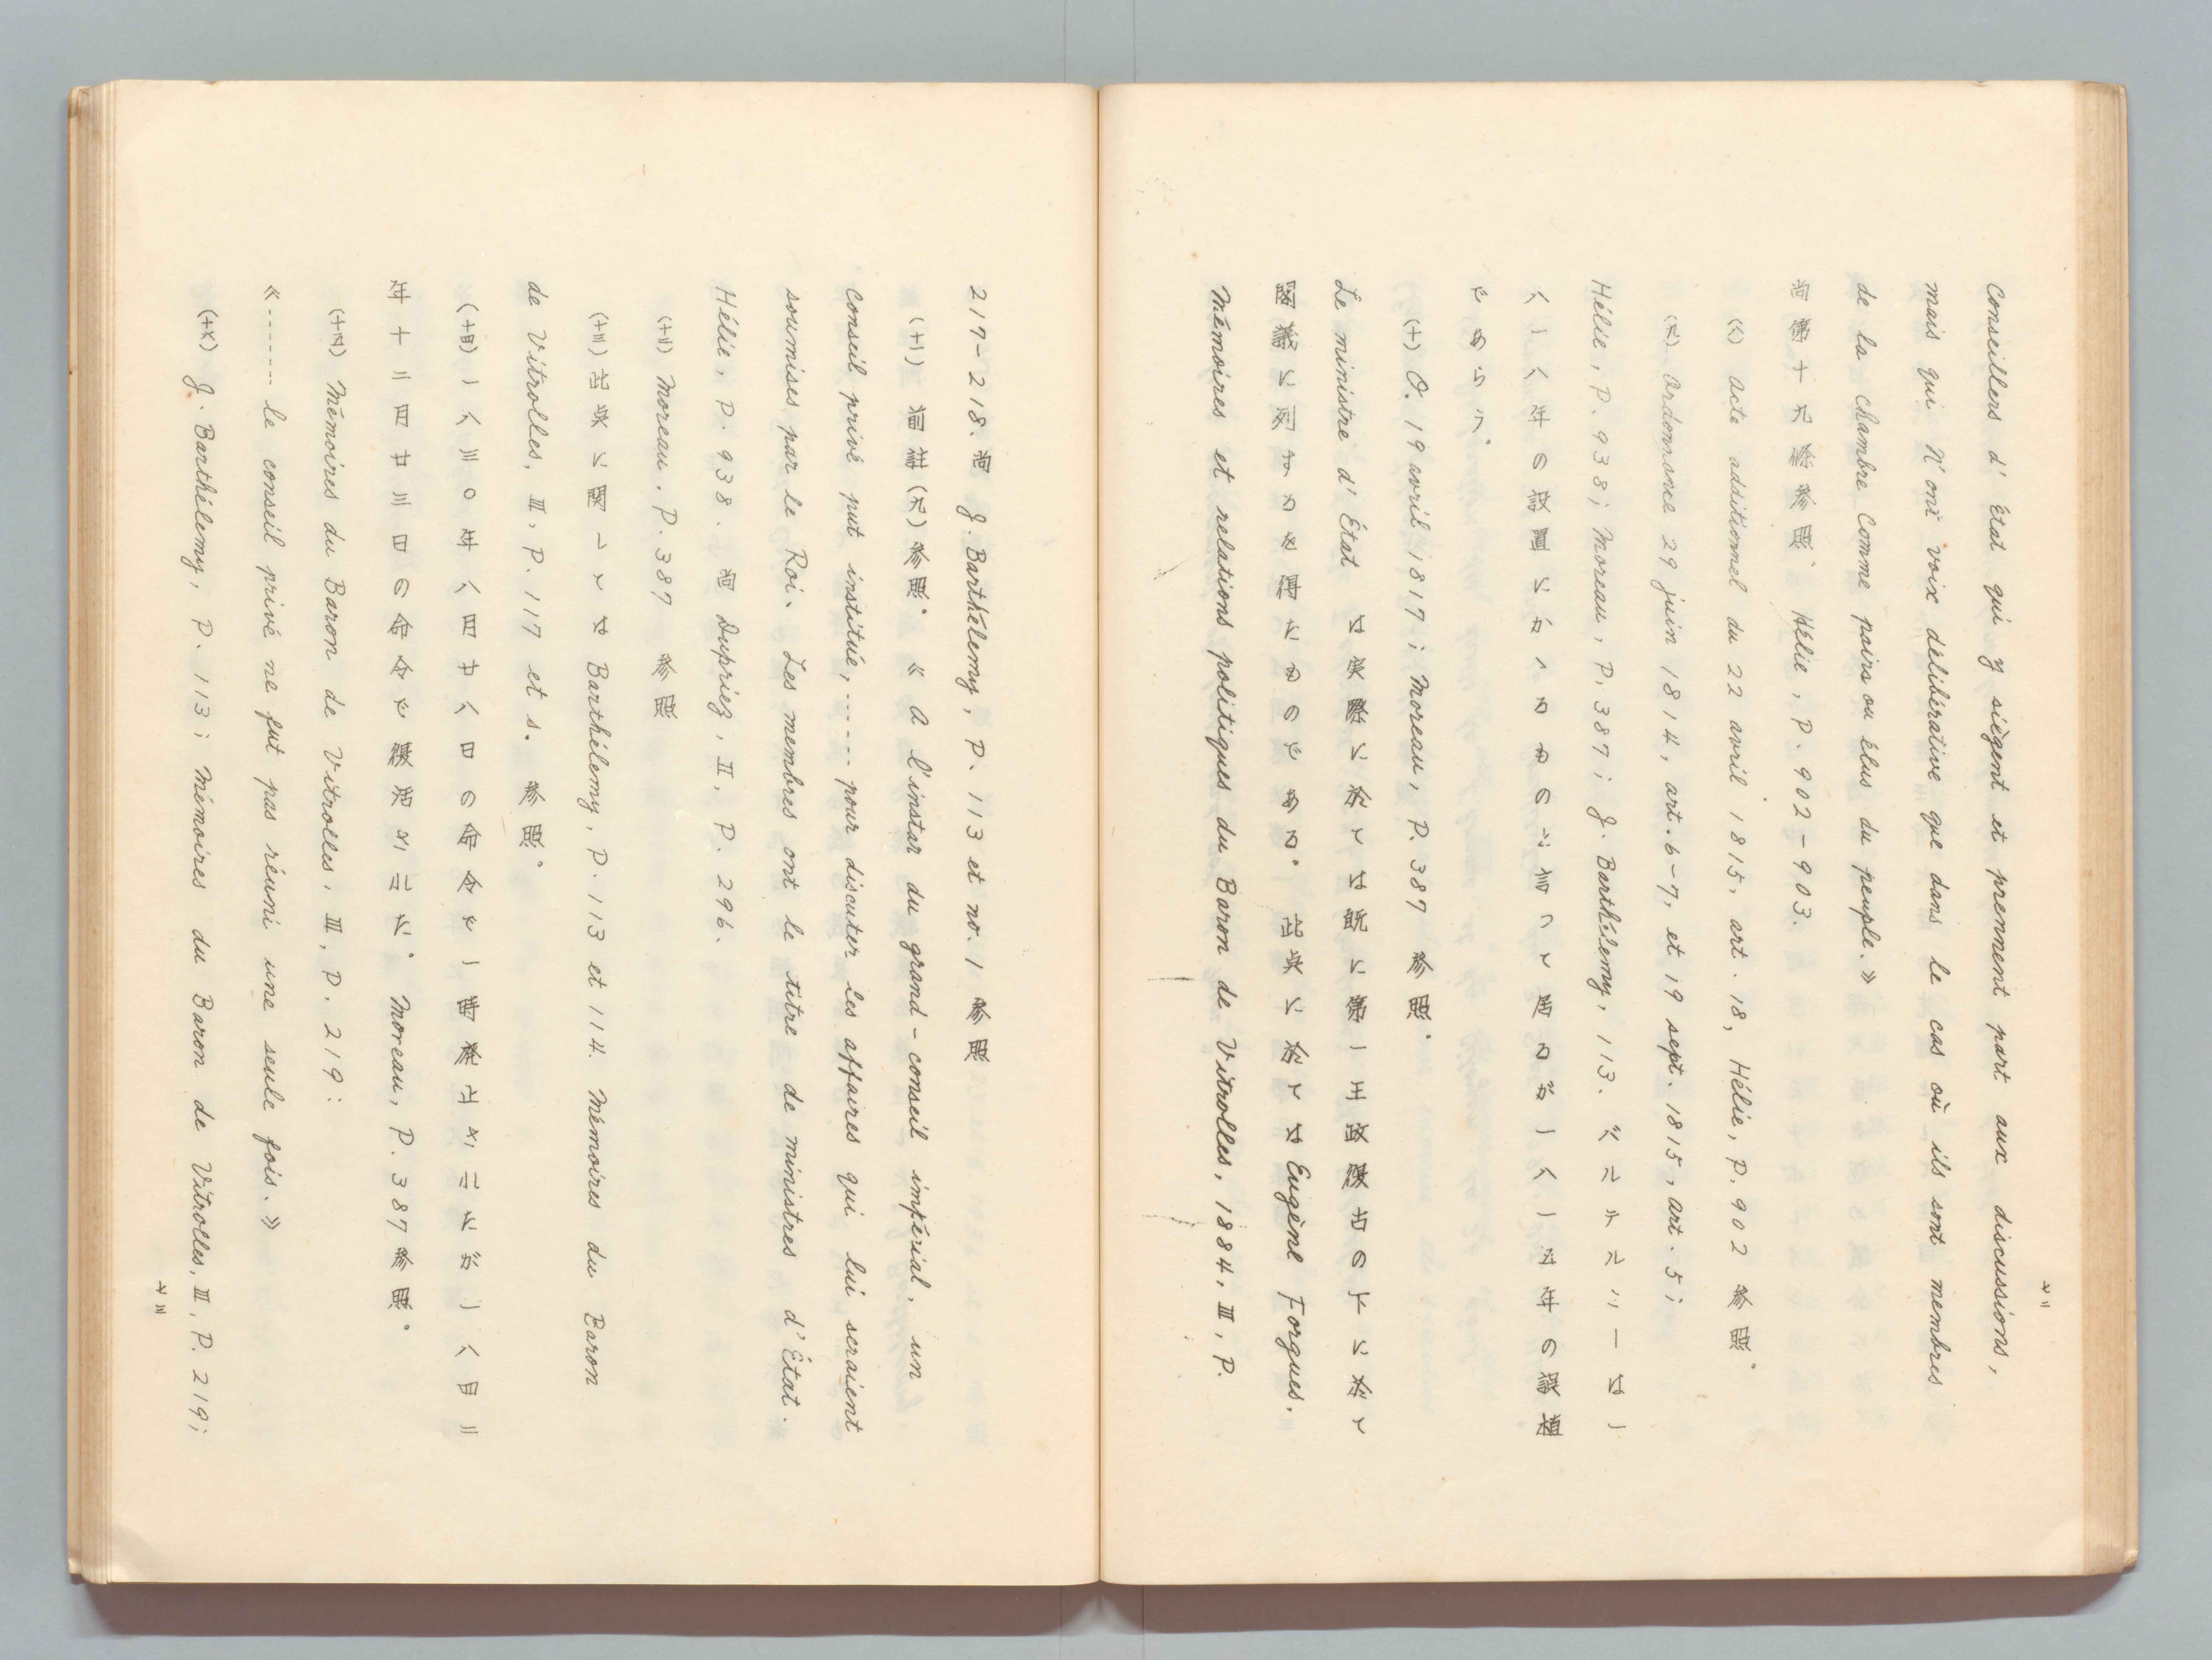 七二
Conseillers d' État qui y siègent et prennent part aux discussions,
mais qui n'ont voix délibérative que dans le cas où ils sont membres
de la chambre comme pairs ou élus du peuple.》
尚第十九條参照。 Hélie, P. 902-903.
(八) acte additionnel du 22 avril 1815, art. 18, Hélie, P. 902 参照。
(九) ordonnance 29 juin 1814, art. 6-7, et 19 sept. 1815, art. 5;
Hélie, P. 938; Moreau, P. 387; J. Barthélemy, 113. バルテルミーは一
八一八年の設置にかゝるものと言つて居るが一八一五年の誤植
であらう。
(十) O. 19 avril 1817; Moreau, P. 387 参照。
Le ministre d' État は実際に於ては既に第一王政復古の下に於て
閣議に列するを得たものである。 此点に於ては Eugène Forgues.
Mémoires et relations politiques du Baron de Vitrolles, 1884, III, P.
217-218. 尚 J. Barthélemy, P. 113 et no. 1 参照
(十一) 前註(九)参照。 《 A l'instar du grand-conseil impérial, un
conseil privé put institué, ------ pour discuter les affaires qui lui seraient
soumises par le Roi. Les membres ont le titre de ministres d'État.
Hélie, P. 938. 尚 Dupriez, II, P. 296.
(十二) Moreau, P. 387 参照
(十三) 此点に関しては Barthélemy, P. 113 et 114. Mémoires du Baron
de Vitrolles, III, P. 117 et s. 参照。
(十四) 一八三〇年八月廿八日の命令で一時廃止されたが一八四二
年十二月廿三日の命令で復活された。 Moreau, P. 387 参照。
(十五) Mémoires du Baron de Vitrolles, III, P. 219:
《 ------ le conseil privé ne fut pas réuni une seule fois. 》
(十六) J. Barthélemy, P. 113; Mémoires du Baron de Vitrolles, III, P. 219;
七三